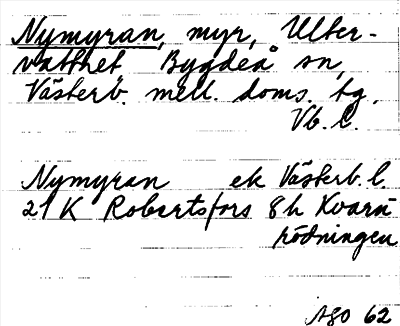 Nymyran, myr, Ulter-
vattnet Bygdeå sn,
Västerb. mell. doms. tg.
Vb. l.
Nymyran ek Västerb. l.
21 K Robertsfors 8h Kvarn
rödningen
ÅGO 62